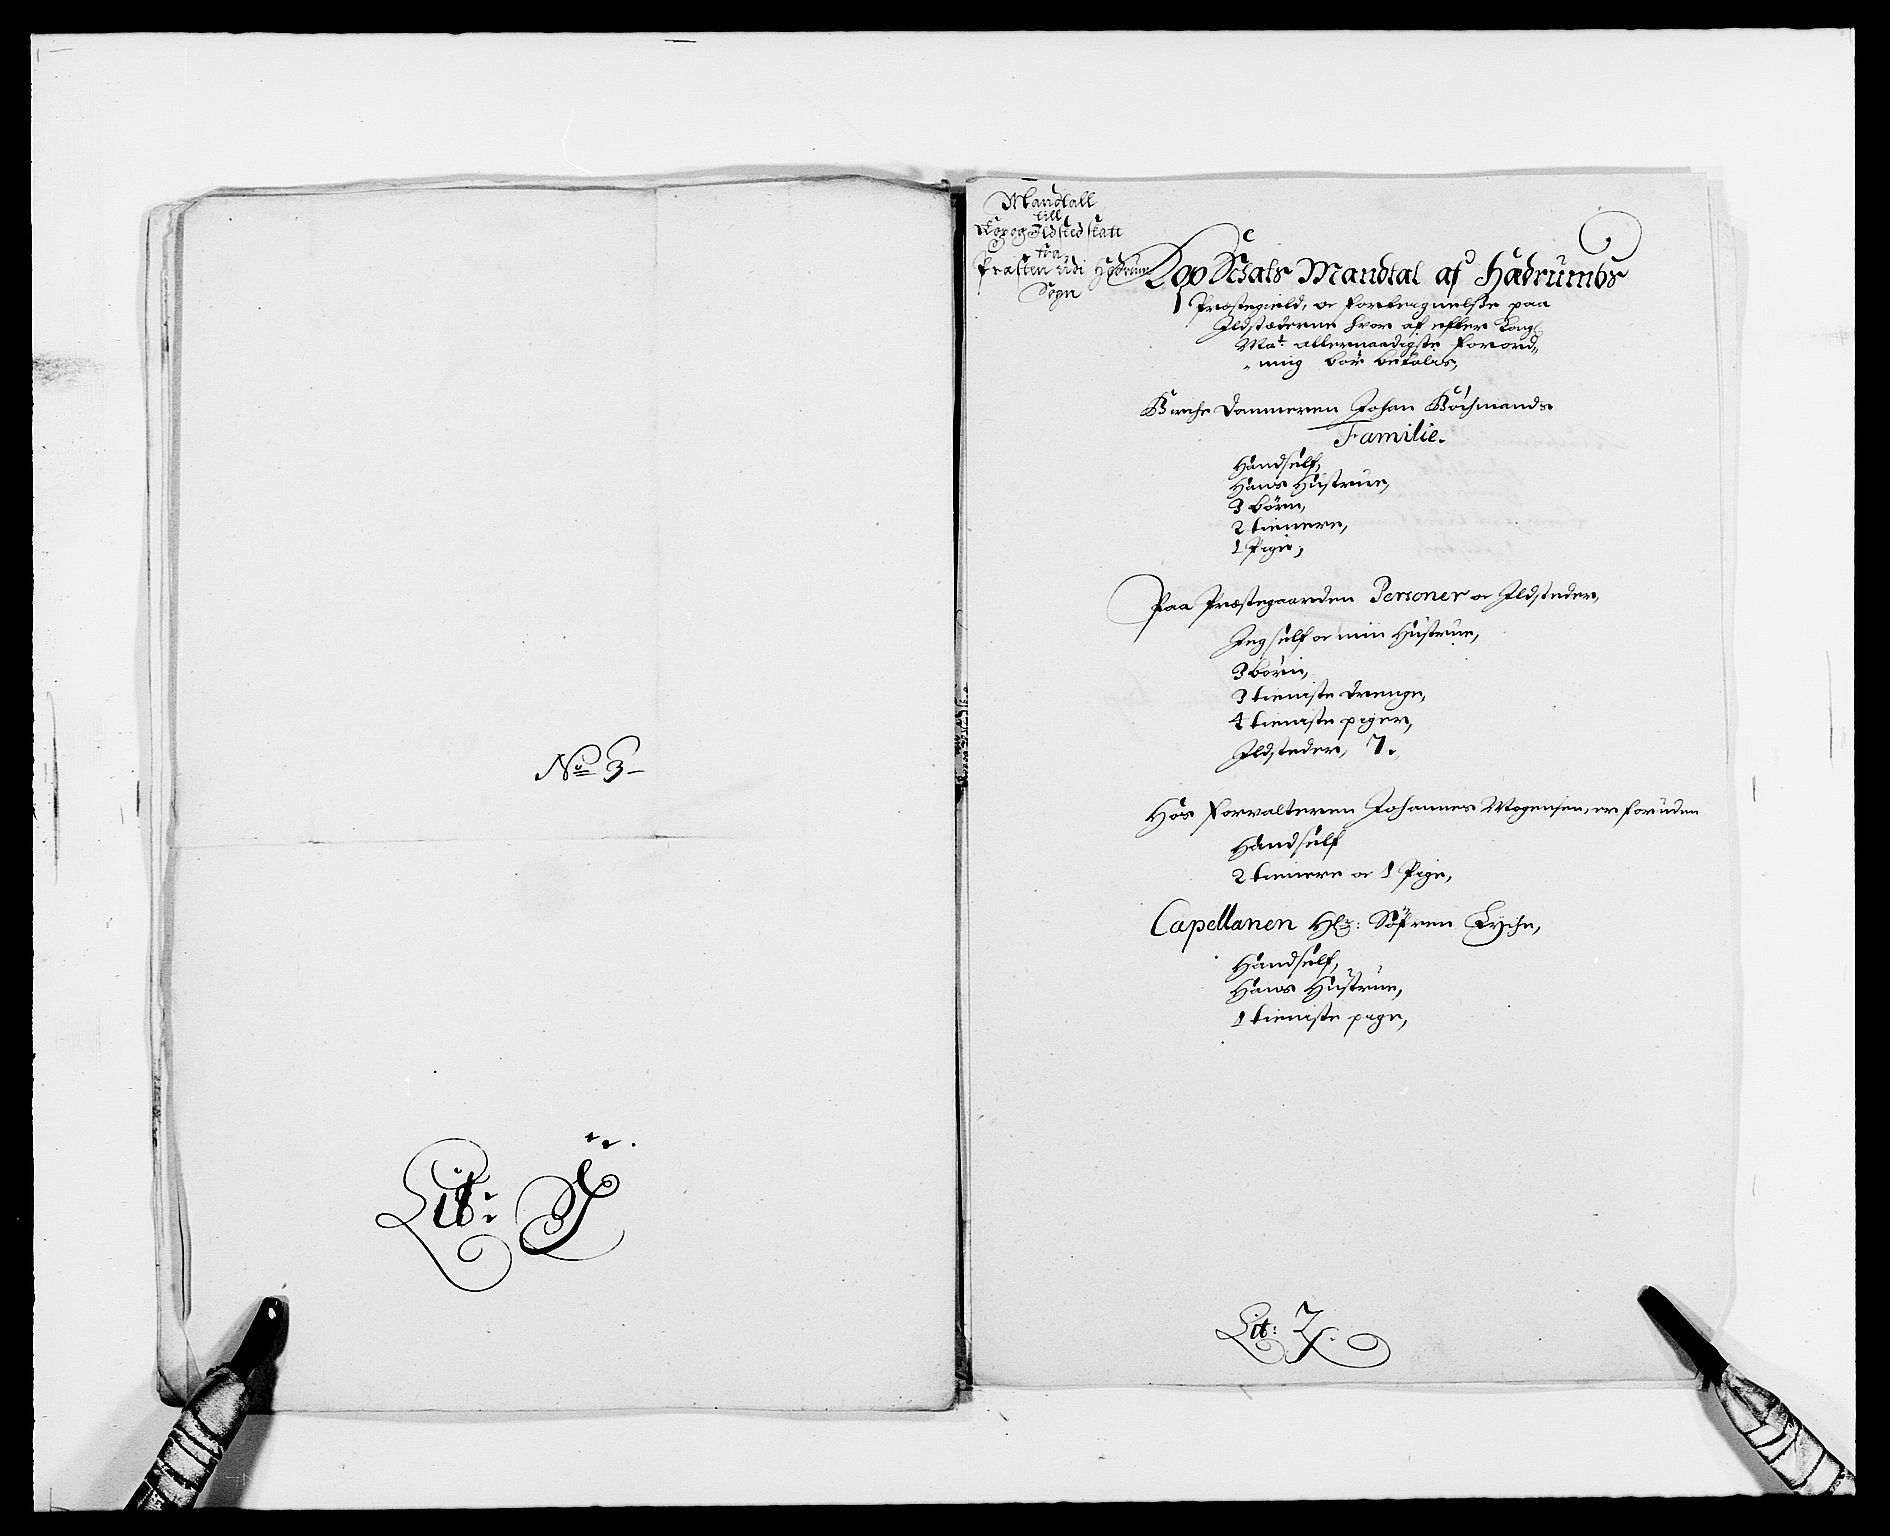 No 3
Lit: J
Mandtall
till
Kop og Ildsted skatt
fra
Præsten udi Hedrum
Sogn
Kop Schats Mandtal af Hædrumbs
Præstegield, oc fortegnelsse paa
Ildstæderne hvor af effter Kong
Ma.t allernaadigste forord„
„ning bør betales,
Kirche Dommeren Johan Kochmands
Familie.
Handself,
Hans Hustrue,
3 börn,
2 tienere,
1 Pige,
Paa Præstegaarden Personer oc Ildsteder,
Jeg self oc min Hustrue,
3 börn,
3 tieniste drenge,
4 tieniste piger,
Ildsteder, 7.
Hos forvalteren Johannes Mogensen, er foruden
Handself
2 tienere oc 1 Pige,
Capellanen Hr: Söfren Lyche,
Handself,
Hans Hustrue,
1 tieniste pige,
Lit: